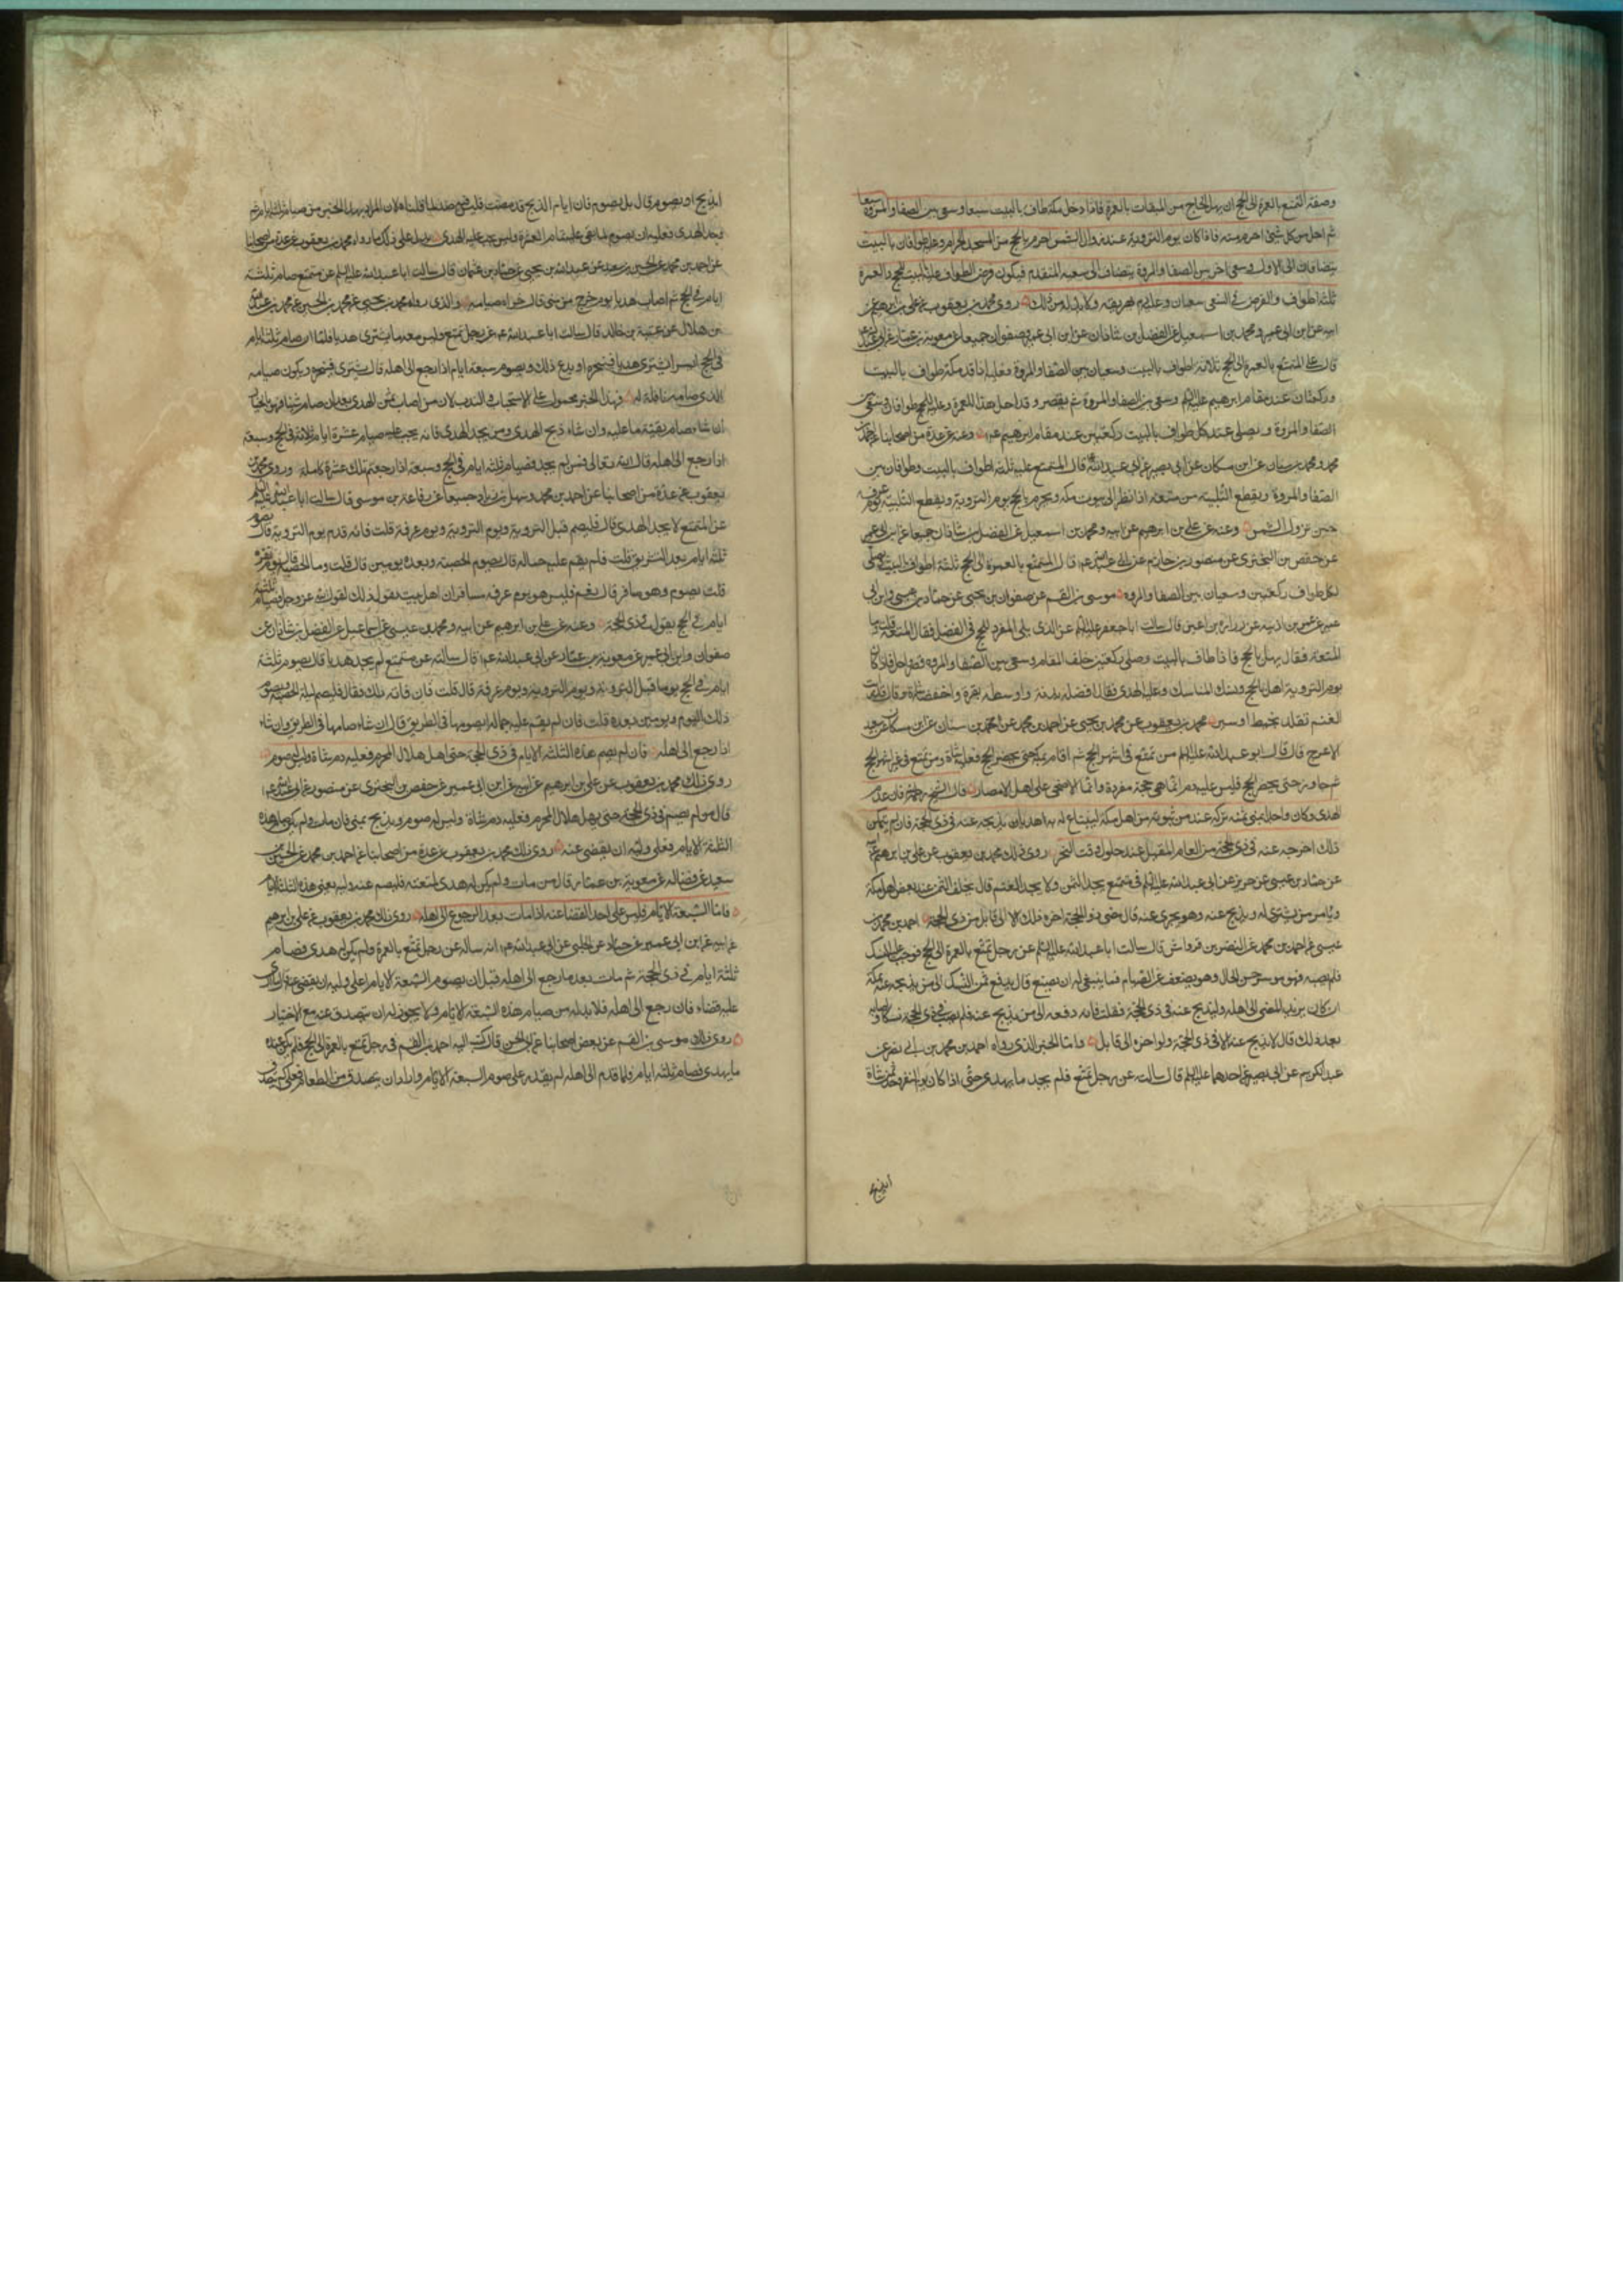 وصفة التمتع بالعمرة الى الحج ان يهل الحاج من الميقات بالعمرة فاذا دخل مكة طاف بالبيت سبعا وسعى بين الصفا والمروة سبعا
ثم احل من كل شئ احرم منه فاذا كان يوم التروية عند زوال الشمس احرم بالحج من المسجد الحرام وعليه طوافان بالبيت
ينضافان الى الاول وسعى اخر بين الصفا والمروة ينضاف الى سعيه المتقدم فيكون فرض الطواف عليه بالبيت للحج والعمرة
ثلثة اطواف والفرض في السعى سعيان وعليه دم فريضة ولابد له من ذلك روى محمد بن يعقوب عن على بن ابرهيم عن
ابيه عن ابن ابى عمير ومحمد بن اسمعيل عن الفضل بن شاذان عن ابن ابى عمير وصفوان جميعا عن معوية بن عمار عن ابى عبد الله
قال على المتمتع بالعمرة الى الحج ثلاثة اطواف بالبيت وسعيان بين الصفا والمروة فعليه اذا قدم مكة طواف بالبيت
وركعتان عند مقام ابرهيم عليه السلم وسعى بين الصفا والمروة ثم يقصر وقد احل هذا للعمرة وعليه للحج طوافان وسعى بين
الصفا والمروة ويصلى عند كل طواف بالبيت ركعتين عند مقام ابرهيم عم وعنه عن عدة من اصحابنا عن احمد بن
محمد ومحمد بن سنان عن ابن مسكان عن ابى بصير عن ابى عبد الله قال المتمتع عليه ثلثة اطواف بالبيت وطوافان بين
الصفا والمروة ويقطع التلبية من متعته اذا نظر الى بيوت مكة ويحرم بالحج يوم التروية ويقطع التلبية يوم عرفة
حين تزول الشمس وعنه عن على بن ابرهيم عن ابيه ومحمد بن اسمعيل عن الفضل بن شاذان جميعا عن ابن ابى عمير
عن حفص بن البخترى عن منصور بن حازم عن ابى عبد الله عم قال المتمتع بالعمرة الى الحج ثلثة اطواف بالبيت ويصلى
لكل طواف ركعتين وسعيان بين الصفا والمروه موسى بن القسم عن صفوان بن يحيى عن حماد بن عيسى وابن ابى
عمير عن عمر بن اذينة عن زرارة بن اعين قال سالت ابا جعفر عليه السلم عن الذى يلى المفرد للحج فى الفضل فقال المتعة فقلت وما
المتعة فقال يهل بالحج فاذا طاف بالبيت وصلى ركعتين خلف المقام وسعى بين الصفا والمروه قصر واحل فاذا كان
يوم التروية اهل بالحج ونسك المناسك وعليه الهدى فقال افضله بدنة واوسطه بقرة واخفضه شاة وقال قد رايت
الغنم تقلد بخيط او سير محمد بن يعقوب عن محمد بن يحيى عن احمد بن محمد عن محمد بن سنان عن ابن مسكان عن سعيد
الاعرج قال قال ابو عبد الله عليه السلم من تمتع فى اشهر الحج ثم اقام بمكة حتى يحضر الحج فعليه شاة ومن تمتع فى غير اشهر الحج
ثم جاور حتى يحضر الحج فليس عليه دم انما هى حجة مفردة وانما الاضحى على اهل الامصار قال الشيخ فان عدم
الهدى وكان واجدا لثمنه تركه عند من يثق به من اهل مكة ليبتاع له به هديا يذبحه عنه فى ذى الحجة فان لم يتمكن
ذلك اخرجه عنه فى ذى الحجة من العام المقبل عند حلول وقت النحر روى ذلك محمد بن يعقوب عن على بن ابرهيم عن ابيه
عن حماد بن عيسى عن حريز عن ابى عبد الله عليه السلم فى متمتع يجد الثمن ولا يجد الغنم قال يخلف الثمن عند بعض اهل مكة
ويامر من يشترى له ويذبح عنه وهو يجزى عنه فان مضى ذو الحجة اخر ذلك الى قابل من ذى الحجة احمد بن محمد بن
عيسى عن احمد بن محمد عن النضر بن قرواش قال سالت ابا عبد الله عليه السلم عن رجل تمتع بالعمرة الى الحج فوجب عليه النسك
فلم يصبه وهو موسر حسن الحال وهو يضعف عن الصيام فما ينبغى له ان يصنع قال يدفع ثمن النسك الى من يذبحه عنه بمكة
ان كان يريد المضى الى اهله وليذبح عنه فى ذى الحجة فقلت فانه دفعه الى من يذبح عنه فلم يصب فى ذى الحجة نسكا واصابه
بعد ذلك قال لا يذبح عنه الا فى ذى الحجة ولو اخره الى قابل واما الخبر الذى رواه احمد بن محمد بن ابى نصر عن
عبد الكريم عن ابى بصير عن احدهما عليه السلم قال سالته عن رجل تمتع فلم يجد ما يهدى حتى اذا كان يوم النفر وجد ثمن شاة
ايذبح
ايذبح او يصوم قال بل يصوم فان ايام الذبح قد مضت فليس فيه ضد لما قلناه لان المراد بهذا الخبر من صيام ثلثة ايام ثم
وجد الهدى فعليه ان يصوم لما بقى عليه تمام العشرة وليس يجب عليه الهدى يدل على ذلك ما رواه محمد بن يعقوب عن عدة من اصحابنا
عن احمد بن محمد عن الحسين بن سعيد عن عبد الله بن يحيى عن حماد بن عثمان قال سالت ابا عبد الله عليه السلم عن متمتع صام ثلثة
ايام فى الحج ثم اصاب هديا يوم خرج من منى قال اجزاه صيامه والذى رواه محمد بن يحيى عن محمد بن الحسين عن محمد بن عبد الله
بن هلال عن عقبة بن خالد قال سالت ابا عبد الله عم عن رجل تمتع وليس معه ما يشترى هديا فلما ان صام ثلثة ايام
فى الحج ايسر ايشترى هديا فينحره او يدع ذلك ويصوم سبعة ايام اذا رجع الى اهله قال يشترى فينحره ويكون صيامه
الذى صامه نافلة له فهذا الخبر محمول على الاستحباب والندب لان من اصاب ثمن الهدى بعد ان صام شيئا فهو بالخيار
ان شاء صام بقية ما عليه وان شاء ذبح الهدى ومن لم يجد الهدى فانه يجب عليه صيام عشرة ايام ثلاثة فى الحج وسبعة
اذا رجع الى اهله قال الله تعالى فمن لم يجد فصيام ثلثة ايام فى الحج وسبعة اذا رجعتم تلك عشرة كاملة وروى محمد بن
يعقوب عن عدة من اصحابنا عن احمد بن محمد وسهل بن زياد جميعا عن رفاعة بن موسى قال سالت ابا عبد الله عليه السلم
عن المتمتع لا يجد الهدى قال فليصم قبل التروية ويوم التروية ويوم عرفة قلت فانه قدم يوم التروية قال يصوم
ثلثة ايام بعد التشريق قلت فلم يقم عليه جماله قال يصوم الحصبة وبعده يومين قال قلت وما الحصبة قال يوم نفره
قلت يصوم وهو مسافر قال نعم فليس هو يوم عرفه مسافرا ان اهل بيت نقول ذلك لقول الله عز وجل فصيام ثلثة
ايام فى الحج يقول فى ذى الحجة وعنه عن على بن ابرهيم عن ابيه ومحمد بن عيسى عن اسماعيل عن الفضل بن شاذان عن
صفوان وابن ابى عمير عن معوية بن عمار عن ابى عبد الله عم قال سالته عن متمتع لم يجد هديا قال يصوم ثلثة
ايام فى الحج يوما قبل التروية ويوم التروية ويوم عرفة قال قلت فان فاته ذلك فقال فليصم ليلة الحصبة ويصوم
ذلك اليوم ويومين بعده قلت فان لم يقم عليه جماله ايصومها فى الطريق قال ان شاء صامها فى الطريق وان شاء
اذا رجع الى اهله فان لم يصم هذه الثلثة الايام فى ذى الحجة حتى اهل هلال المحرم فعليه دم شاة وليس له صوم
روى ذلك محمد بن يعقوب عن على بن ابرهيم عن ابيه عن ابن ابى عمير عن حفص بن البخترى عن منصور عن ابى عبد الله عم
قال من لم يصم فى ذى الحجة حتى يهل هلال المحرم فعليه دم شاة وليس له صوم ويذبح بمنى فان مات ولم يكن صام هذه
الثلثة الايام فعلى وليه ان يقضى عنه روى ذلك محمد بن يعقوب عن عدة من اصحابنا عن احمد بن محمد عن الحسين بن
سعيد عن فضاله عن معوية بن عمار قال من مات ولم يكن له هدى لمتعته فليصم عنه وليه يعنى هذه الثلثة الايام
فاما السبعة الايام فليس على احد القضاء عنه اذا مات بعد الرجوع الى اهله روى ذلك محمد بن يعقوب عن على بن ابرهيم
عن ابيه عن ابن ابى عمير عن حماد عن الحلبى عن ابى عبد الله عم انه ساله عن رجل تمتع بالعمرة ولم يكن له هدى فصام
ثلثة ايام فى ذى الحجة ثم مات بعد ما رجع الى اهله قبل ان يصوم السبعة الايام اعلى وليه ان يقضى عنه قال ما ارى
عليه قضاء فان رجع الى اهله فلابد له من صيام هذه السبعة الايام ولا يجوز له ان يتصدق عنه مع الاختيار
روى ذلك موسى بن القسم عن بعض اصحابنا عن ابى الحسن قال كتب اليه احمد بن القسم فى رجل تمتع بالعمرة الى الحج فلم يكن عنده
ما يهدى فصام ثلثة ايام فلما قدم الى اهله لم يقدر على صوم السبعة الايام واراد ان يتصدق من الطعام فعلى كم يتصدق